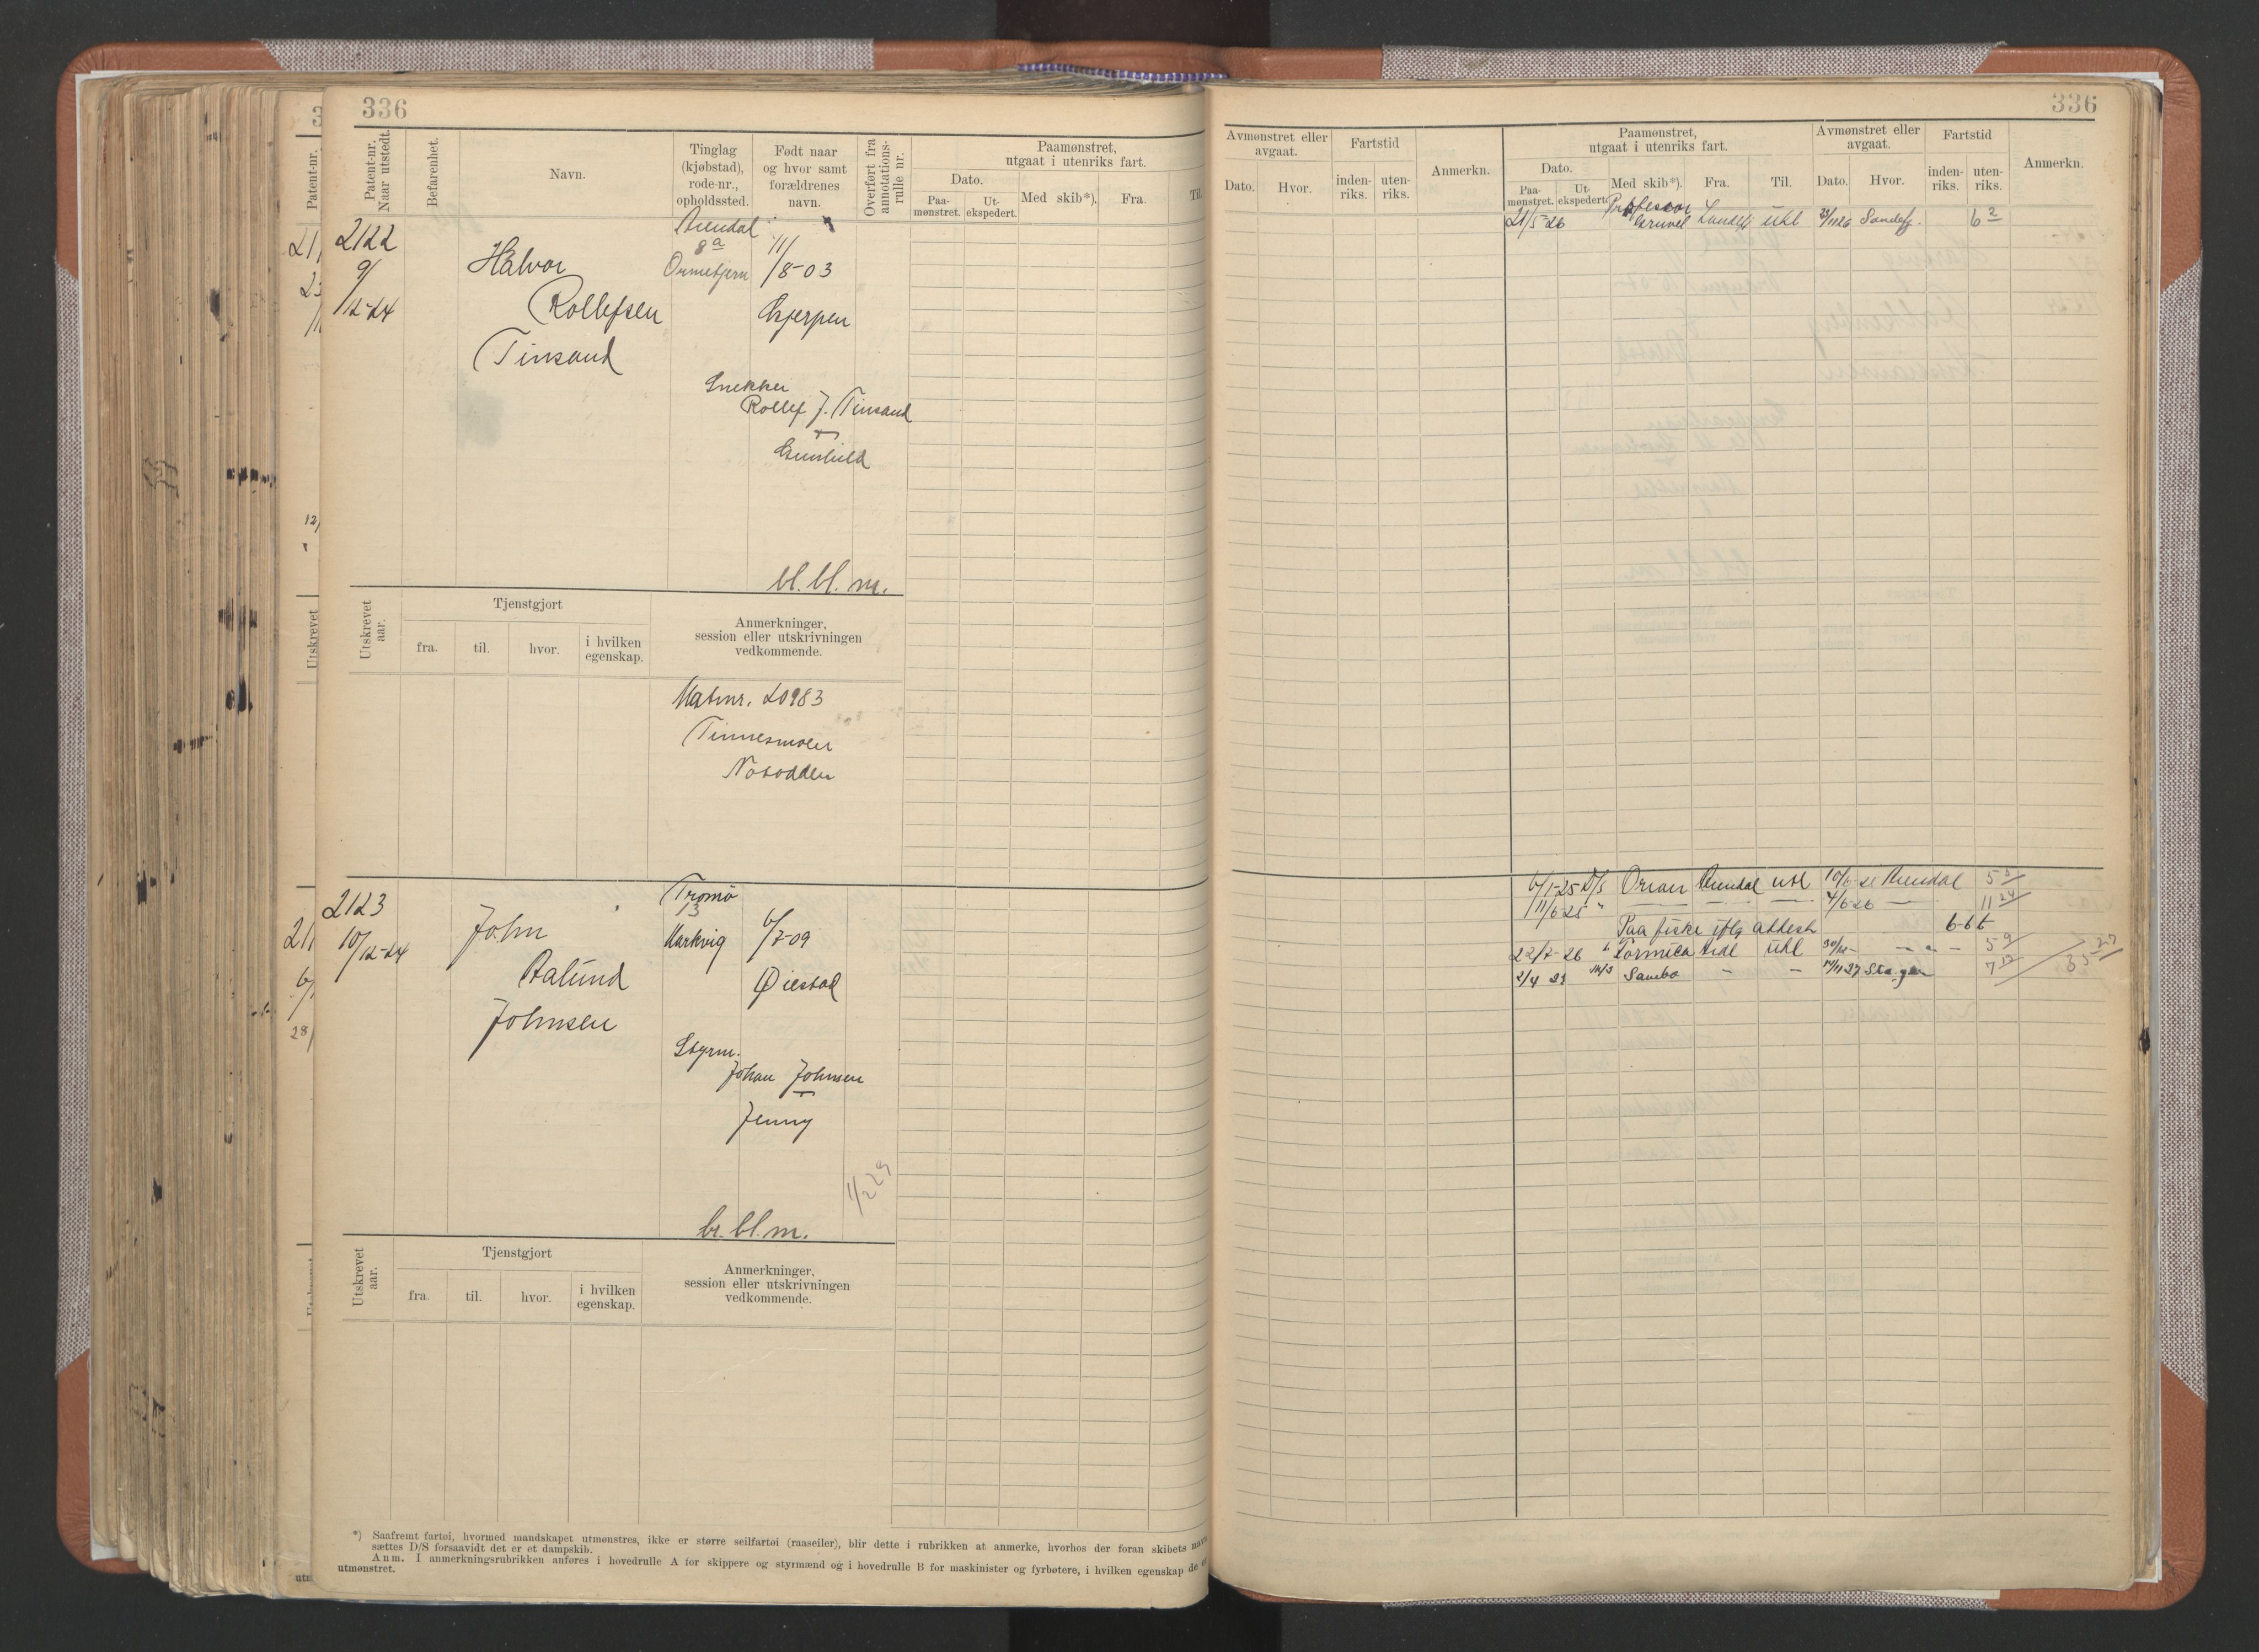 336
Patent-nr.
Naar utstedt.
Befarenhet.
Navn.
Tinglag
(kjøbstad),
rode-nr.,
opholdssted.
Født naar
og hvor samt
forældrenes
navn.
Overført fra
annotations-
rulle nr.
Paamønstret,
utgaat i utenriks fart.
Dato.
Paa-
mønstret.
Ut-
ekspedert.
Med skib*).
Fra.
Til.
2122
9/12-24
Halvor
Rollefsen
Tinsand
Arendal
8a
11/8-03
Gjerpen
Snekker
Rollef J. Tinsand
Gunhild
bl. bl. m.
Utskrevet
aar.
Tjenstgjort
fra.
til.
hvor.
i hvilken
egenskap.
Anmerkninger,
session eller utskrivningen
vedkommende.
Matrnr. 20983
Tinnesmoen
Notodden
2123
10/12-24
John
Aalund
Johnsen
Tromø
13
Markvig
6/7-09
Øiestad
Styrm.
Johan Johnsen
Jenny
br. bl. m.
Utskrevet
aar.
Tjenstgjort
fra.
til.
hvor.
i hvilken
egenskap.
Anmerkninger,
session eller utskrivningen
vedkommende.
*) Saafremt fartøi, hvormed mandskapet utmønstres, ikke er større seilfartøi (raaseiler), blir dette i rubrikken at anmerke, hvorhos der foran skibets navn
sættes D/S forsaavidt det er et dampskib.
Anm. I anmerkningsrubrikken anføres i hovedrulle A for skippere og styrmænd og i hovedrulle B for maskinister og fyrbøtere, i hvilken egenskap de er
utmønstret.
336
Avmønstret eller
avgaat.
Dato.
Hvor.
Fartstid
inden-
riks.
uten-
riks.
Anmerkn.
Paamønstret,
utgaat i utenriks fart.
Dato.
Paa-
mønstret.
Ut-
ekspedert.
Med skib*).
Fra.
Til.
Avmønstret eller
avgaat.
Dato.
Hvor.
Fartstid
inden-
riks.
uten-
riks.
Anmerkn.
21/5-26 Professor Gruvel utl Sandefj. 6 2
6/1-25 D/S Orian Arendal utl Arendal
11/6-25 " 4/6-26 11 24
Paa fiske iflg attest 6-6t
22/7-26 Formica utl
2/4 27 Sambo